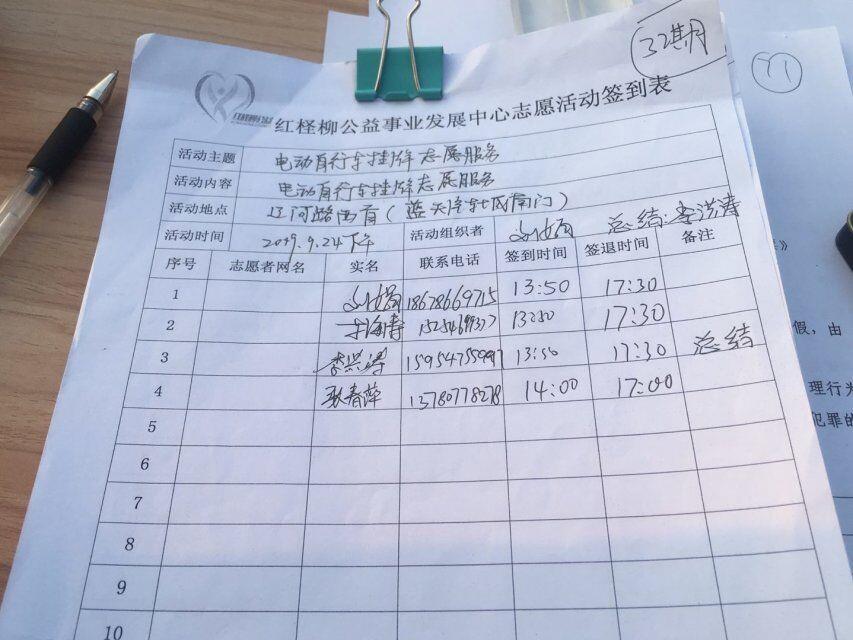 32期
71
红柽柳公益事业发展中心志愿活动签到表
活动主题 电动自行车挂牌志愿服务
活动内容 电动自行车挂牌志愿服务
活动地点 辽河路西首（蓝天汽车城南门）
活动时间 2019.9.24下午 活动组织者 总结:李洪涛
序号 志愿者网名 实名 联系电话 签到时间 签退时间 备注
1 18678669715 13:50 17:30
2 13:50 17:30
3 15954755997 13:50 17:30 总结
4 耿春萍 13780778278 14:00 17:00
5
6
7
8
9
10
》
假，由
理行为
犯罪的